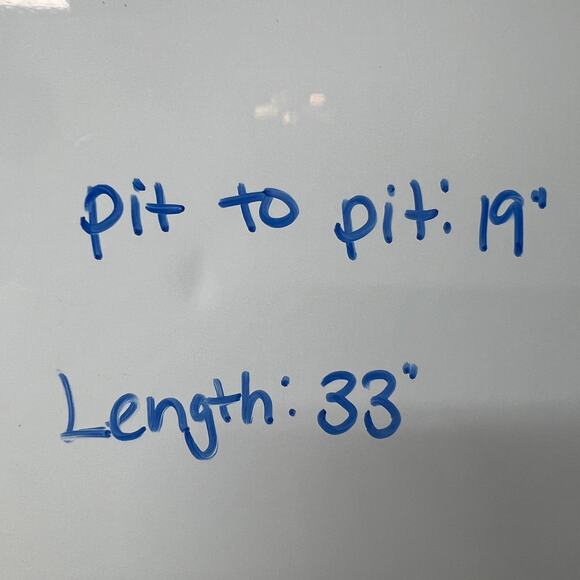 pit to pit: 19"
Length: 33"